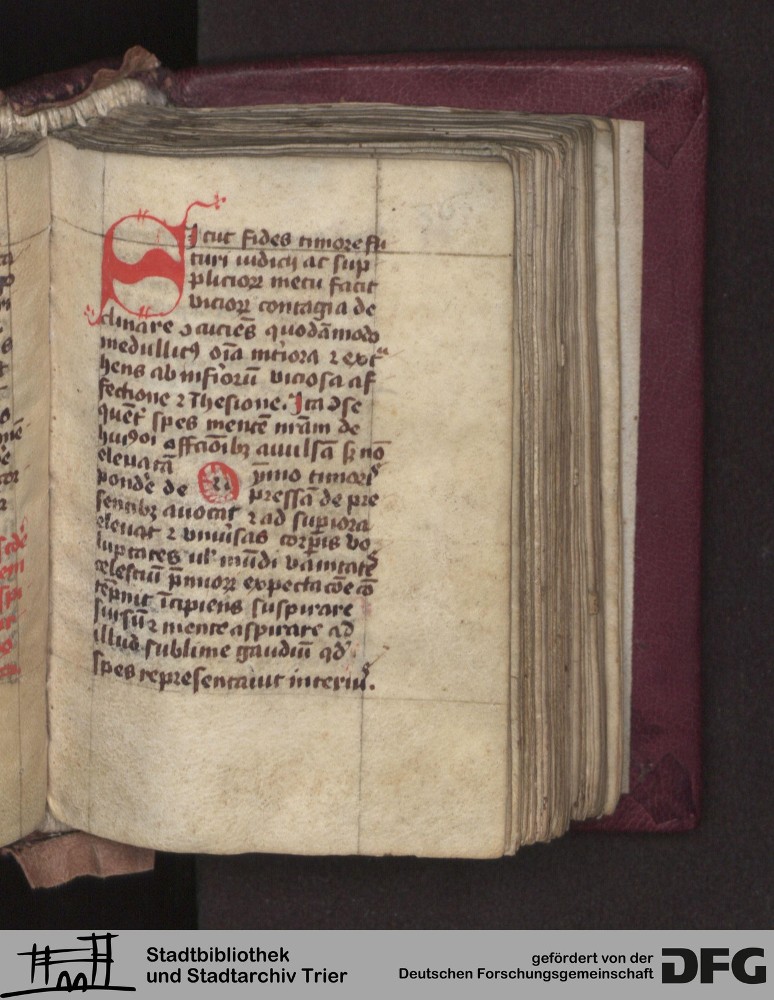 Sicut fides timore fu
turi iudicij ac sup
plicioꝝ metu facit
vicioꝝ contagia de
clinare ꝯ aucieꝫ quodāmodo
medullitꝰ oīa
hens ab vuciosa af
fectione ⁊ Thesione. Ita ꝯse
quēt spes mentē nr̄am de
huiꝰoi affcōibꝫ auulsā sꝫ nō
eleuatā p̄mo timoris
pondē de pressā de pre
sentibꝫ auocat ⁊ ad suꝑiora
eleuat ⁊ vniũsas corꝑis vo
luptates ul' mūdi vāitateꝫ
celestiū p̄mioꝝ expectacōe cō
tēpnit īcipiens suspirare
sursūꝫ mente aspirare ad
illud sublime gaudiū qd'
spes representauit interiꝰ.
Stadtbibliothek
und Stadtarchiv Trier
gefördert von der
Deutschen Forschungsgemeinschaft
DFG